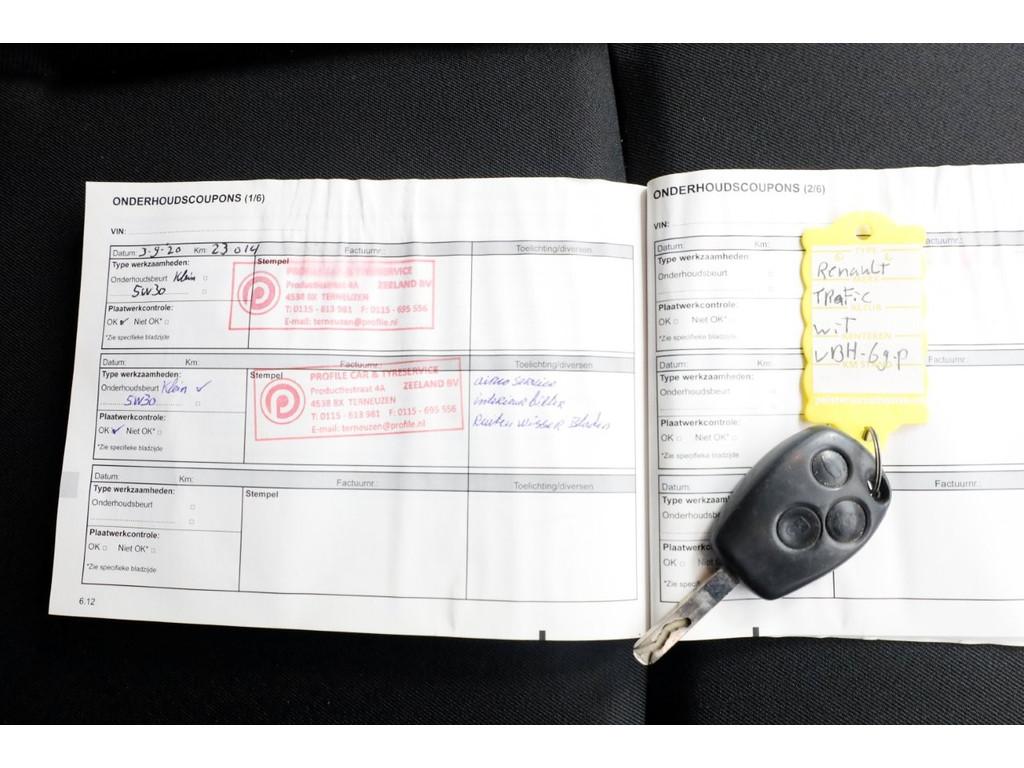 ONDERHOUDSCOUPONS (1/6)
VIN:
Datum: 3-9-20 Km: 23014 Factuurnr.: Toelichting/diversen
Type werkzaamheden: Stempel
Onderhoudsbeurt Klein
5W30
Plaatwerkcontrole:
OK ✓ Niet OK* □
*Zie specifieke bladzijde
PROFILE CAR & TYRESERVICE
ZEELAND BV
Productiestraat 4A
4538 BX TERNEUZEN
T: 0115 - 613 981 F: 0115 - 695 556
E-mail: terneuzen@profile.nl
Datum: Km: Factuurnr.: Toelichting/diversen
Type werkzaamheden: Stempel
Onderhoudsbeurt Klein ✓
5W30
Plaatwerkcontrole:
OK ✓ Niet OK* □
*Zie specifieke bladzijde
PROFILE CAR & TYRESERVICE
ZEELAND BV
Productiestraat 4A
4538 BX TERNEUZEN
T: 0115 - 613 981 F: 0115 - 695 556
E-mail: terneuzen@profile.nl
airco service
interieur filter
Ruiten wisser Bladen
Datum: Km: Factuurnr.: Toelichting/diversen
Type werkzaamheden: Stempel
Onderhoudsbeurt □
Plaatwerkcontrole:
OK □ Niet OK* □
*Zie specifieke bladzijde
6.12
ONDERHOUDSCOUPONS (2/6)
VIN:
Datum: Km:
Type werkzaamheden:
Onderhoudsbeurt
Plaatwerkcontrole:
OK □ Niet OK* □
*Zie specifieke bladzijde
Datum: Km:
Type werkzaamheden:
Onderhoudsbeurt
Plaatwerkcontrole:
OK □ Niet OK* □
*Zie specifieke bladzijde
Datum: Factuurnr.:
TYPE
Renault
Trafic
KLEUR
wit
KENTEKEN
VBH-69-P
KM STAND